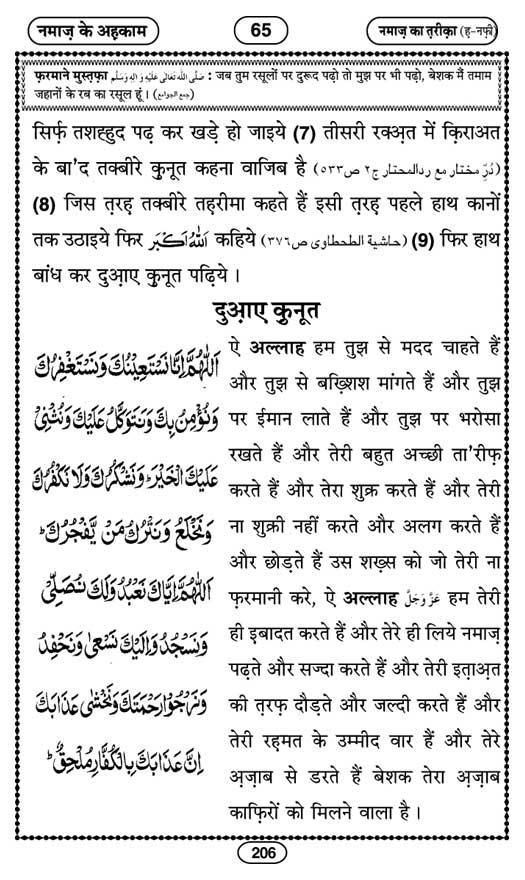 नमाज़ के अहकाम
65
नमाज़ का त़रीक़ा (ह़-नफ़ी)
फ़रमाने मुस्त़फ़ा صَلَّى اللّٰهُ تَعَالٰى عَلَيْهِ وَاٰلِهٖ وَسَلَّم : जब तुम रसूलों पर दुरूद पढ़ो तो मुझ पर भी पढ़ो, बेशक मैं तमाम
जहानों के रब का रसूल हूं । (جمع الجوامع)
सिर्फ़ तशह्हुद पढ़ कर खड़े हो जाइये (7) तीसरी रक्अ़त में क़िराअत
के बा'द तक्बीरे क़ुनूत कहना वाजिब है (دُرِّ مختار مع ردالمحتار ج٢ ص٥٣٣)
(8) जिस त़रह़ तक्बीरे तह़रीमा कहते हैं इसी त़रह़ पहले हाथ कानों
तक उठाइये फिर اَللّٰهُ اَكْبَر कहिये (حاشية الطحطاوى ص٣٧٦) (9) फिर हाथ
बांध कर दुआ़ए क़ुनूत पढ़िये ।
दुआ़ए क़ुनूत
اَللّٰهُمَّ اِنَّا نَسْتَعِيْنُكَ وَنَسْتَغْفِرُكَ
وَنُؤْمِنُ بِكَ وَنَتَوَكَّلُ عَلَيْكَ وَنُثْنِىْ
عَلَيْكَ الْخَيْرَ وَنَشْكُرُكَ وَلَا نَكْفُرُكَ
وَنَخْلَعُ وَنَتْرُكُ مَنْ يَّفْجُرُكَ ط
اَللّٰهُمَّ اِيَّاكَ نَعْبُدُ وَلَكَ نُصَلِّىْ
وَنَسْجُدُ وَاِلَيْكَ نَسْعٰى وَنَحْفِدُ
وَنَرْجُوْا رَحْمَتَكَ وَنَخْشٰى عَذَابَكَ
اِنَّ عَذَابَكَ بِالْكُفَّارِ مُلْحِقٌ ط
ऐ अल्लाह हम तुझ से मदद चाहते हैं
और तुझ से बख़्शिश मांगते हैं और तुझ
पर ईमान लाते हैं और तुझ पर भरोसा
रखते हैं और तेरी बहुत अच्छी ता'रीफ़
करते हैं और तेरा शुक्र करते हैं और तेरी
ना शुक्री नहीं करते और अलग करते हैं
और छोड़ते हैं उस शख़्स को जो तेरी ना
फ़रमानी करे, ऐ अल्लाह عَزَّوَجَلَّ हम तेरी
ही इबादत करते हैं और तेरे ही लिये नमाज़
पढ़ते और सज्दा करते हैं और तेरी इत़ाअ़त
की त़रफ़ दौड़ते और जल्दी करते हैं और
तेरी रहमत के उम्मीद वार हैं और तेरे
अ़ज़ाब से डरते हैं बेशक तेरा अ़ज़ाब
काफ़िरों को मिलने वाला है ।
206